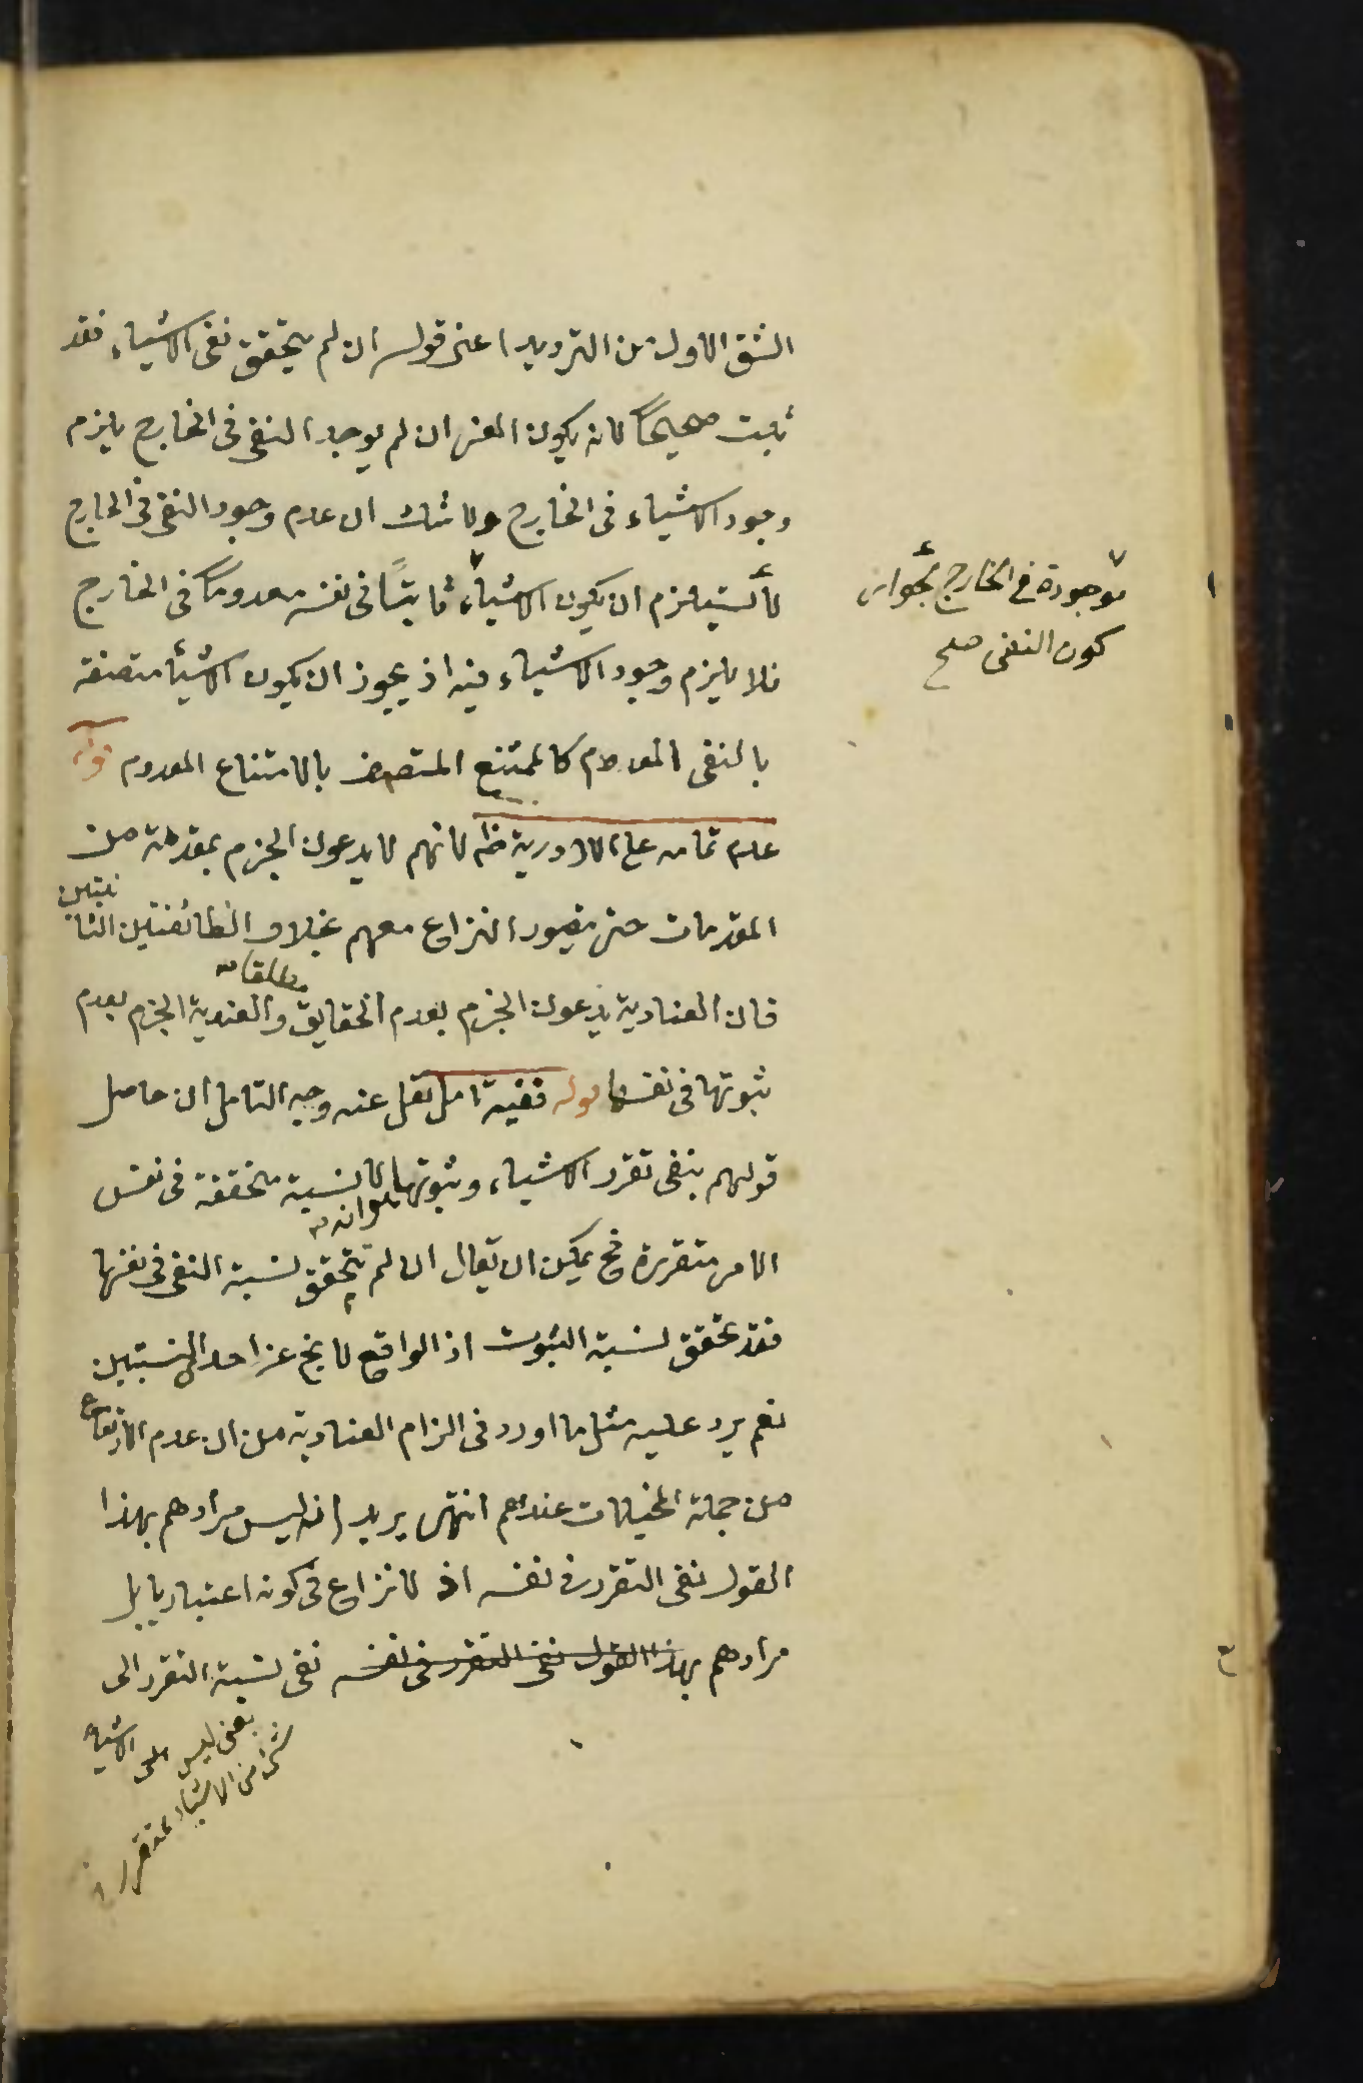 الشق الاول من الترديد اعنى قوله ان لم يتحقق نفى الاشياء فقد
ثبت صحيحاً لانه يكون المعنى ان لم يوجد النفى فى الخارج يلزم
وجود الاشياء فى الخارج ولا شك ان عدم وجود النفى فى الخارج
لا يستلزم ان يكون الاشياء ثابتاً فى نفسه معدوماً فى الخارج
موجودة فى الخارج لجواز
كون النفى صح
فلا يلزم وجود الاشياء فيه اذ يجوز ان يكون الاشياء متصفة
بالنفى المعدوم كالممتنع المتصف بالامتناع المعدوم قوله
عدم تمامه على اللاادرية ظ لانهم لا يدعون الجزم بمقدمة من
المقدمات حتى يتصور النزاع معهم بخلاف الطائفتين الثانيتين
فان العنادية يدعون الجزم بعدم الحقايق مطلقا والعندية الجزم بعدم
ثبوتها فى نفسها قوله ففيه تامل نقل عنه وجه التامل ان حاصل
قولهم ينفى تقرر الاشياء وثبوتها لا نسبة متحققة فى نفس
الامر متقررة فح يمكن ان يقال انه لو لم يتحقق نسبة النفى فى نفسها
فقد تحقق نسبة الثبوت اذ الواقع لا يخ عن احد النسبتين
نعم يرد عليه مثل ما اورد فى الزام العنادية من ان عدم الارتفاع
من جملة المخيلات عندهم انتهى يريد انه ليس مرادهم بهذا
القول نفى التقرر فى نفسه اذ لا نزاع فى كونه اعتباريا بل
مرادهم بهذا القول نفى التقرر فى نفسه نفى نسبة التقرر الى
الى الاشياء
بمعنى ليس
شئ من الاشياء متقرر